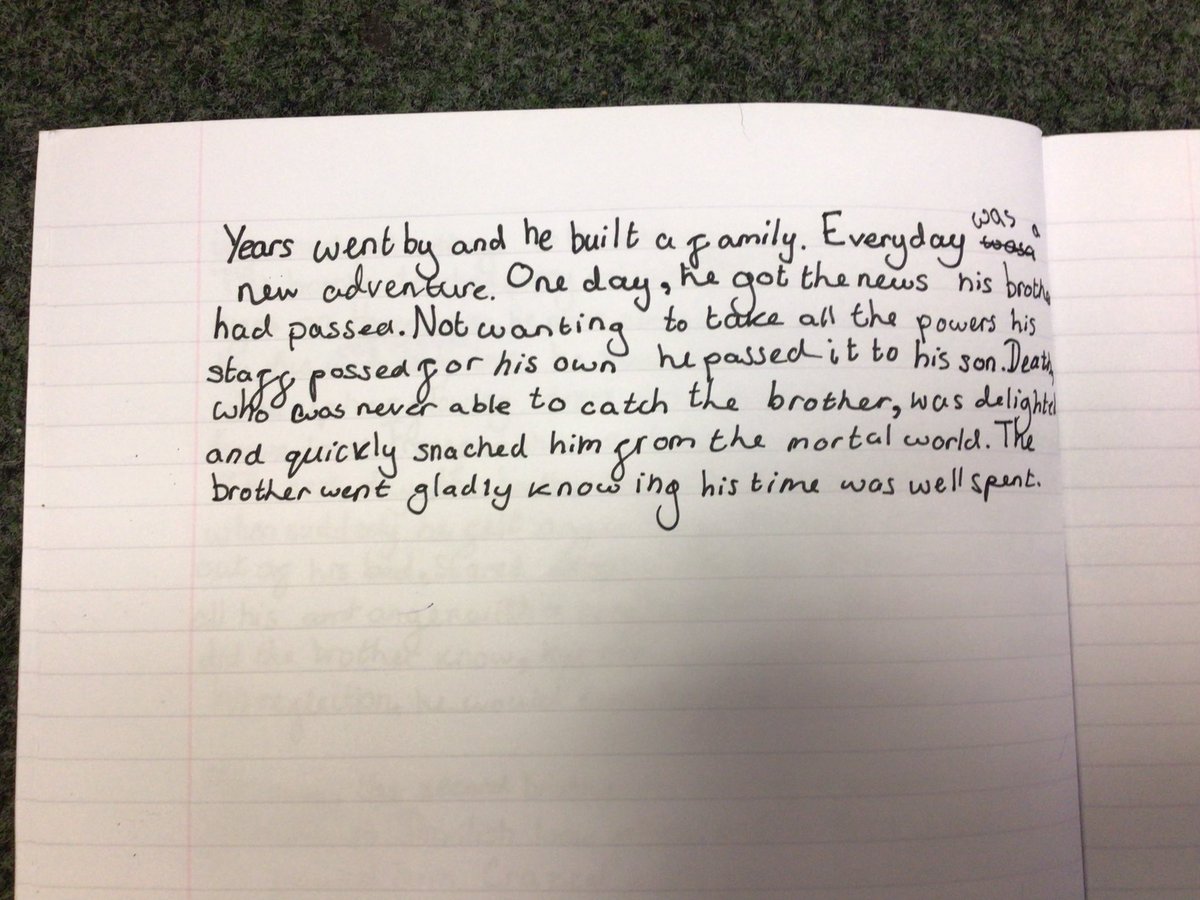 Years went by and he built a family. Everyday was a
new adventure. One day, he got the news his brother
had passed. Not wanting to take all the powers his
staff possed for his own he passed it to his son. Death,
who was never able to catch the brother, was delighted
and quickly snached him from the mortal world. The
brother went gladly knowing his time was well spent.